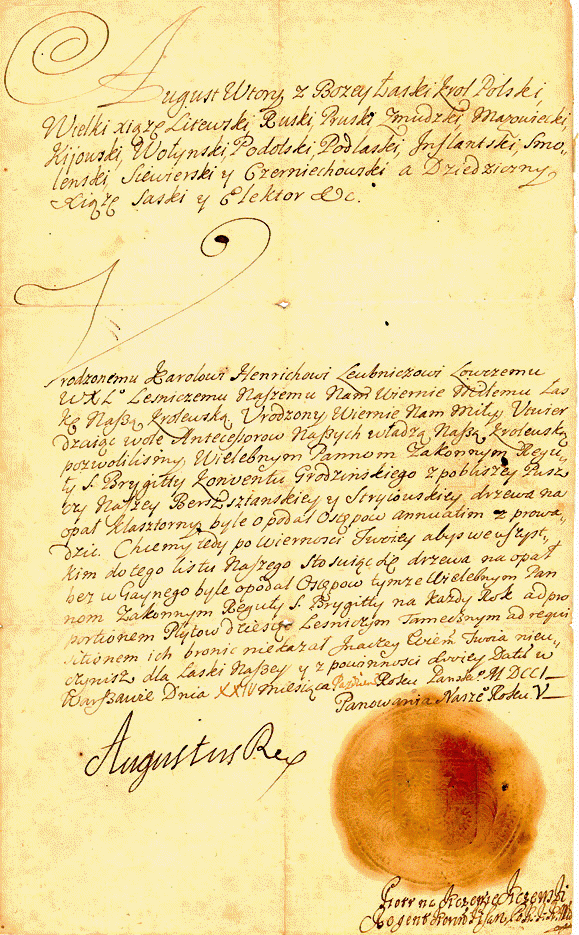 August Wtory z Bozey Łaski Krol Polski,
Wielki xiąze Litewski, Ruski, Pruski, Zmudzki, Mazowiecki,
Kijowski, Wołynski, Podolski, Podlaski, Inflantski, Smo-
lenski, Siewierski y Czerniechowski a Dziedziczny
Xiąze Saski y Elektor &c.
Vrodzonemu Karolowi Henrichowi Leubniczowi Łowczemu
WXLo Lesniczemu Naszemu Nam Wiernie Miłemu Łas
kę Naszą Krolewską Vrodzony Wiernie Nam Miły Utwier
dzaiąc wole Antecessorow Naszych władzą Naszą Krolewską
pozwolilismy Wielebnym Pannom Zakonnym Reguł-
ły S. Brygitty Konventu Grodzinskiego z pobliszey Pusz
czy Naszey Bersztanskiey y Stryiowskiey drzewa na
opał klasztorny byle opodal Ostępow annuatim z prowa-
dzic. Chcemy tedy po Wiernosci Twoiey abys we wszyst-
kim do tego listu Naszego Stosuiąc się drzewa na opał
bez wGaynego byle opodal Ostępow tymze Wielebnym Pan
nom Zakonnym Reguły S. Brygitty na kazdy Rok ad pro
portionem Płytow dziesięc Lesniczym Tamecznym ad requi
sitionem ich bronic niekazał Inaczey Wiern Twoia nieu-
czynisz dla Łaski Naszey y z powinnosci swoiey Datt w
Warszawie Dnia XXIV miesiąca Roku Panskio MDCCI
Panowania Naszeo Roku V
Augustus Rex